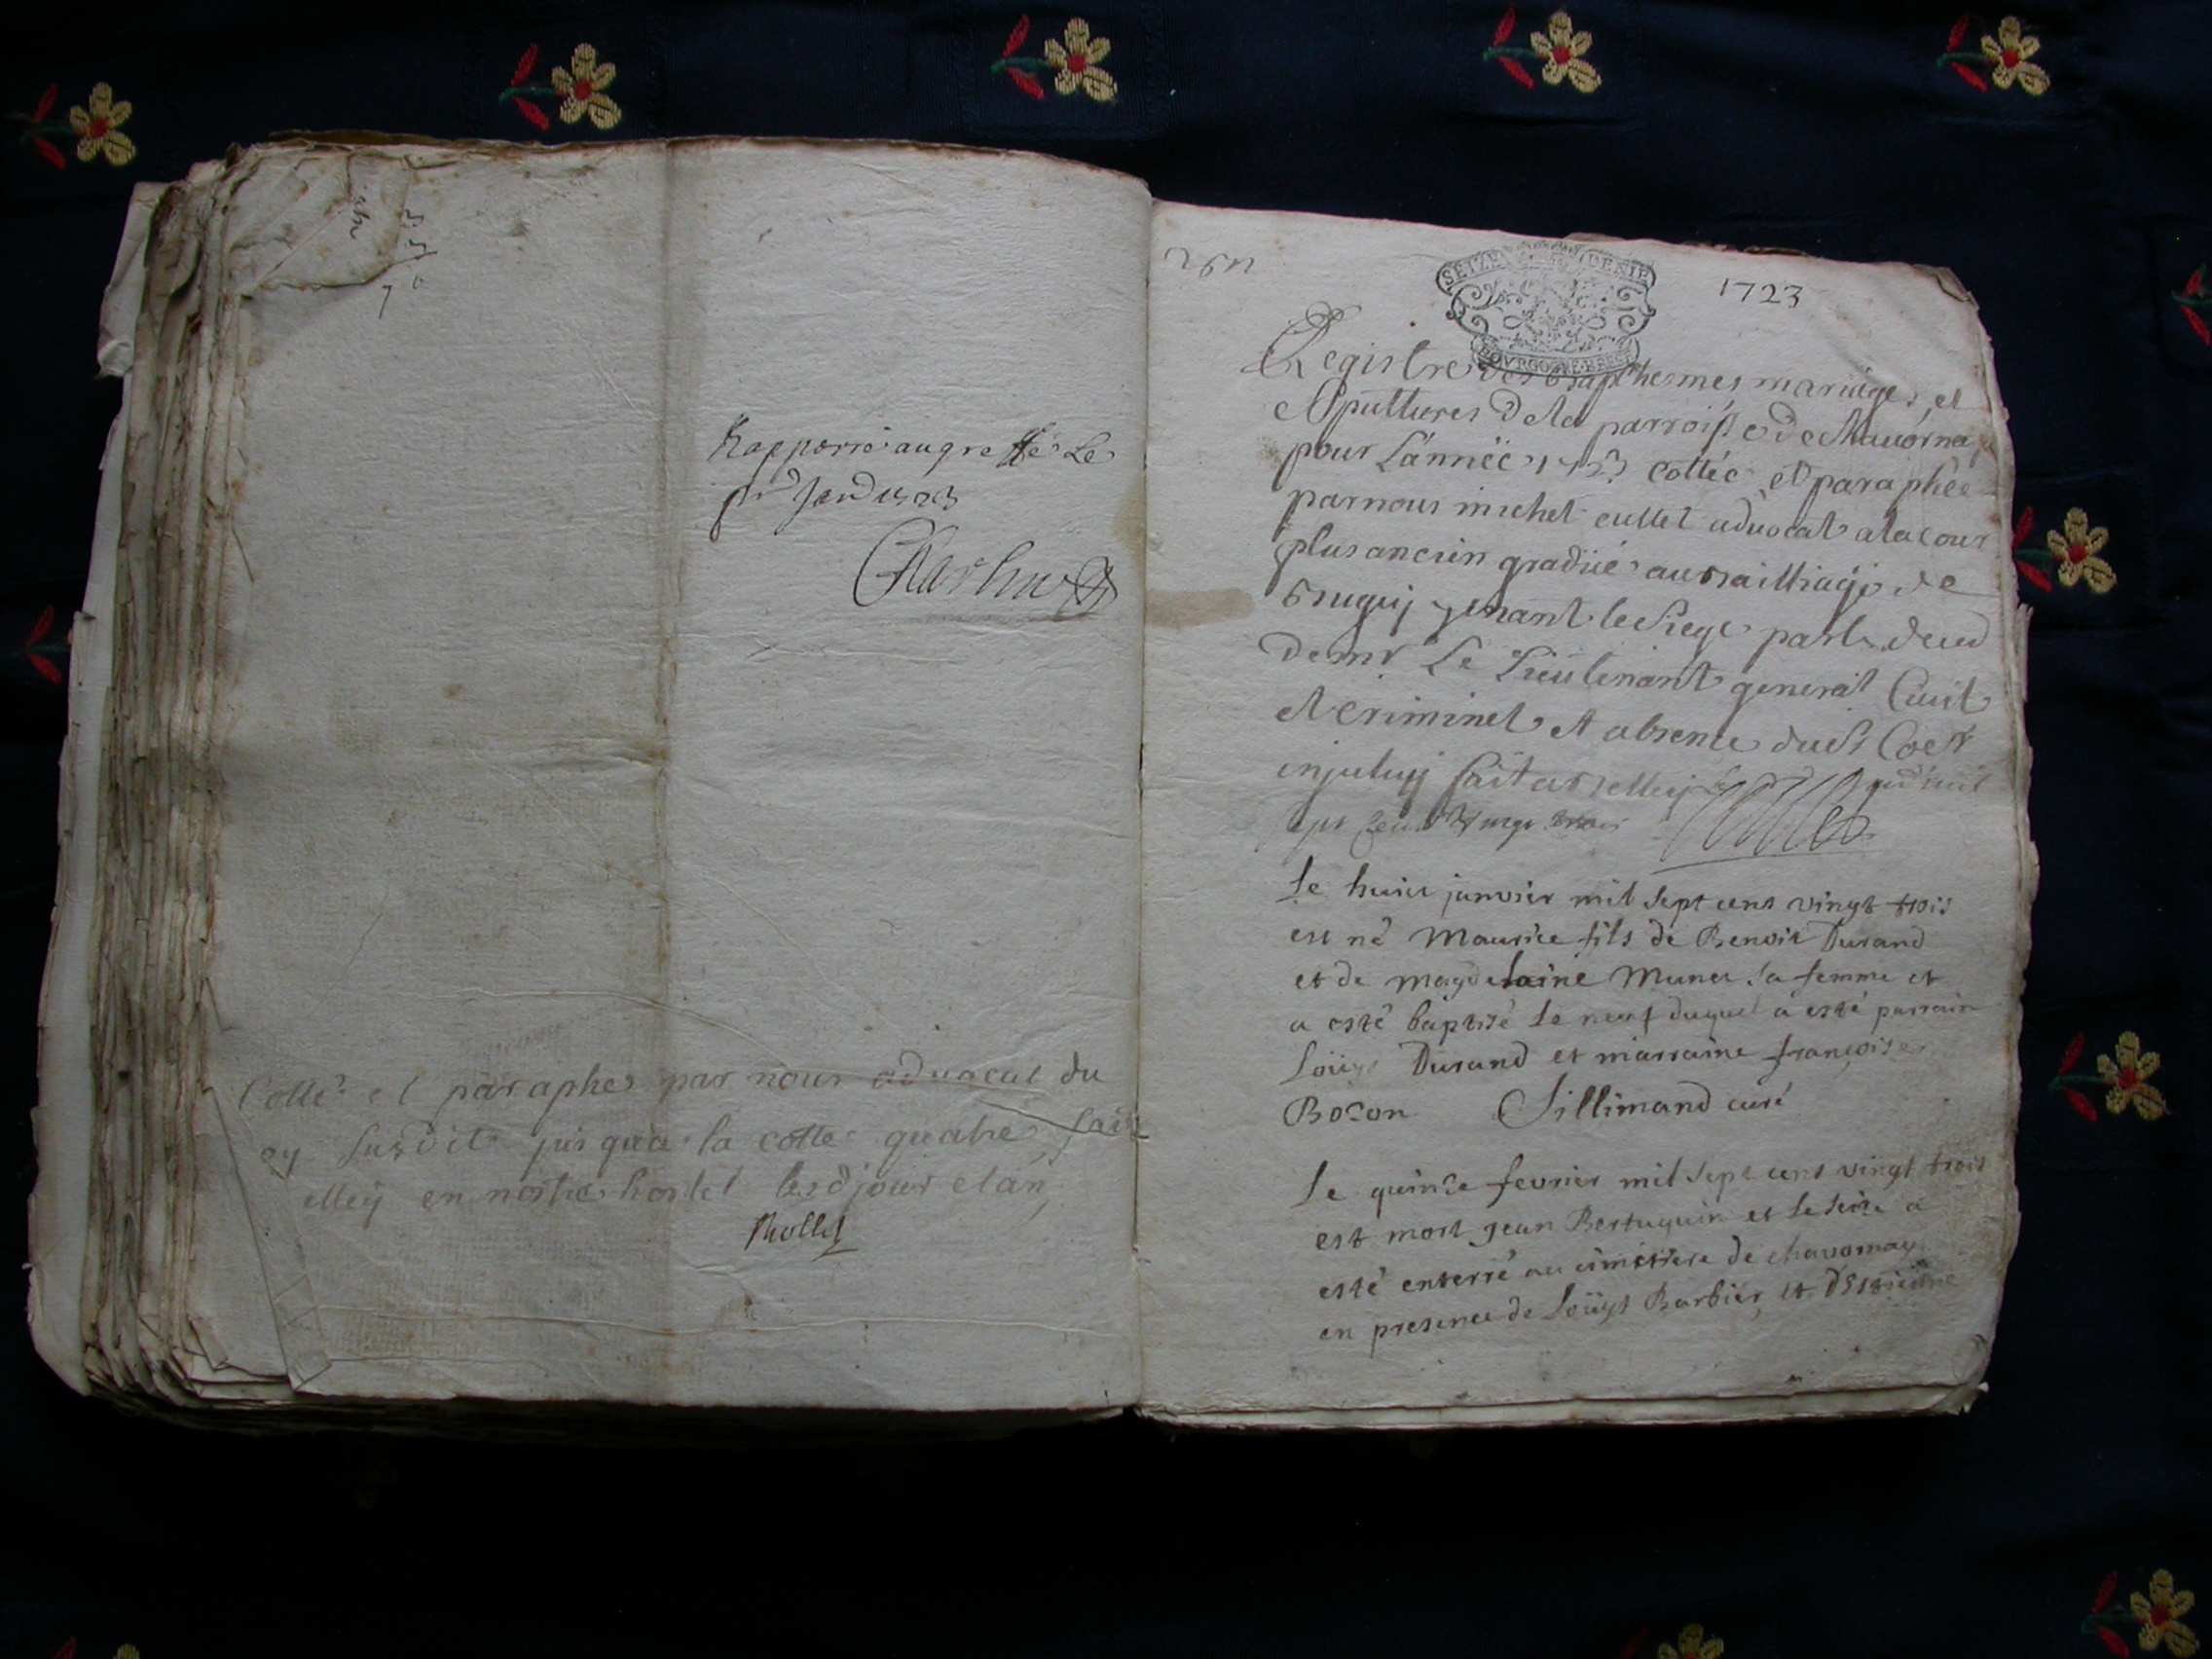 Rapporté au greffe Le
Collé et paraphé par nous advocat du
susdit jusqua la cotte quatre, fait
en nostre hostel lesd jour et an,
1723
SEIZE DENIE
BOVRGOGNE·BRES
Registre des bapthesmes, mariages, et
sepultures de la parroisse de Chavornay
pour L'année 1723 cottée et paraphée
par nous michel cullet advocat a la cour
plus ancien gradué au bailliage de
tenant le siege par le deced
de mr Le Lieutenant general Civil
et criminel et absence du Sr
fait
sept cent vingt trois
Le huict janvier mil sept cens vingt trois
est né Maurice fils de Benoit Durand
et de Magdelaine Munet sa femme et
a esté baptisé le neuf duquel a esté parrain
Loüys Durand et marraine françoise
Bozon Sillimand curé
Le quinze fevrier mil sept cens vingt trois
est mort Jean Bertuquin et le seize a
esté enterré au cimetiere de chavornay
en presence de Loüys Barbier, et d'Estienne